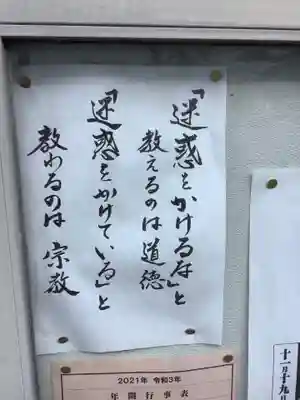 「迷惑をかけるな」と
教えるのは道徳
「迷惑をかけている」と
教わるのは宗教
十一月十九日
2021年 令和3年
年間行事表